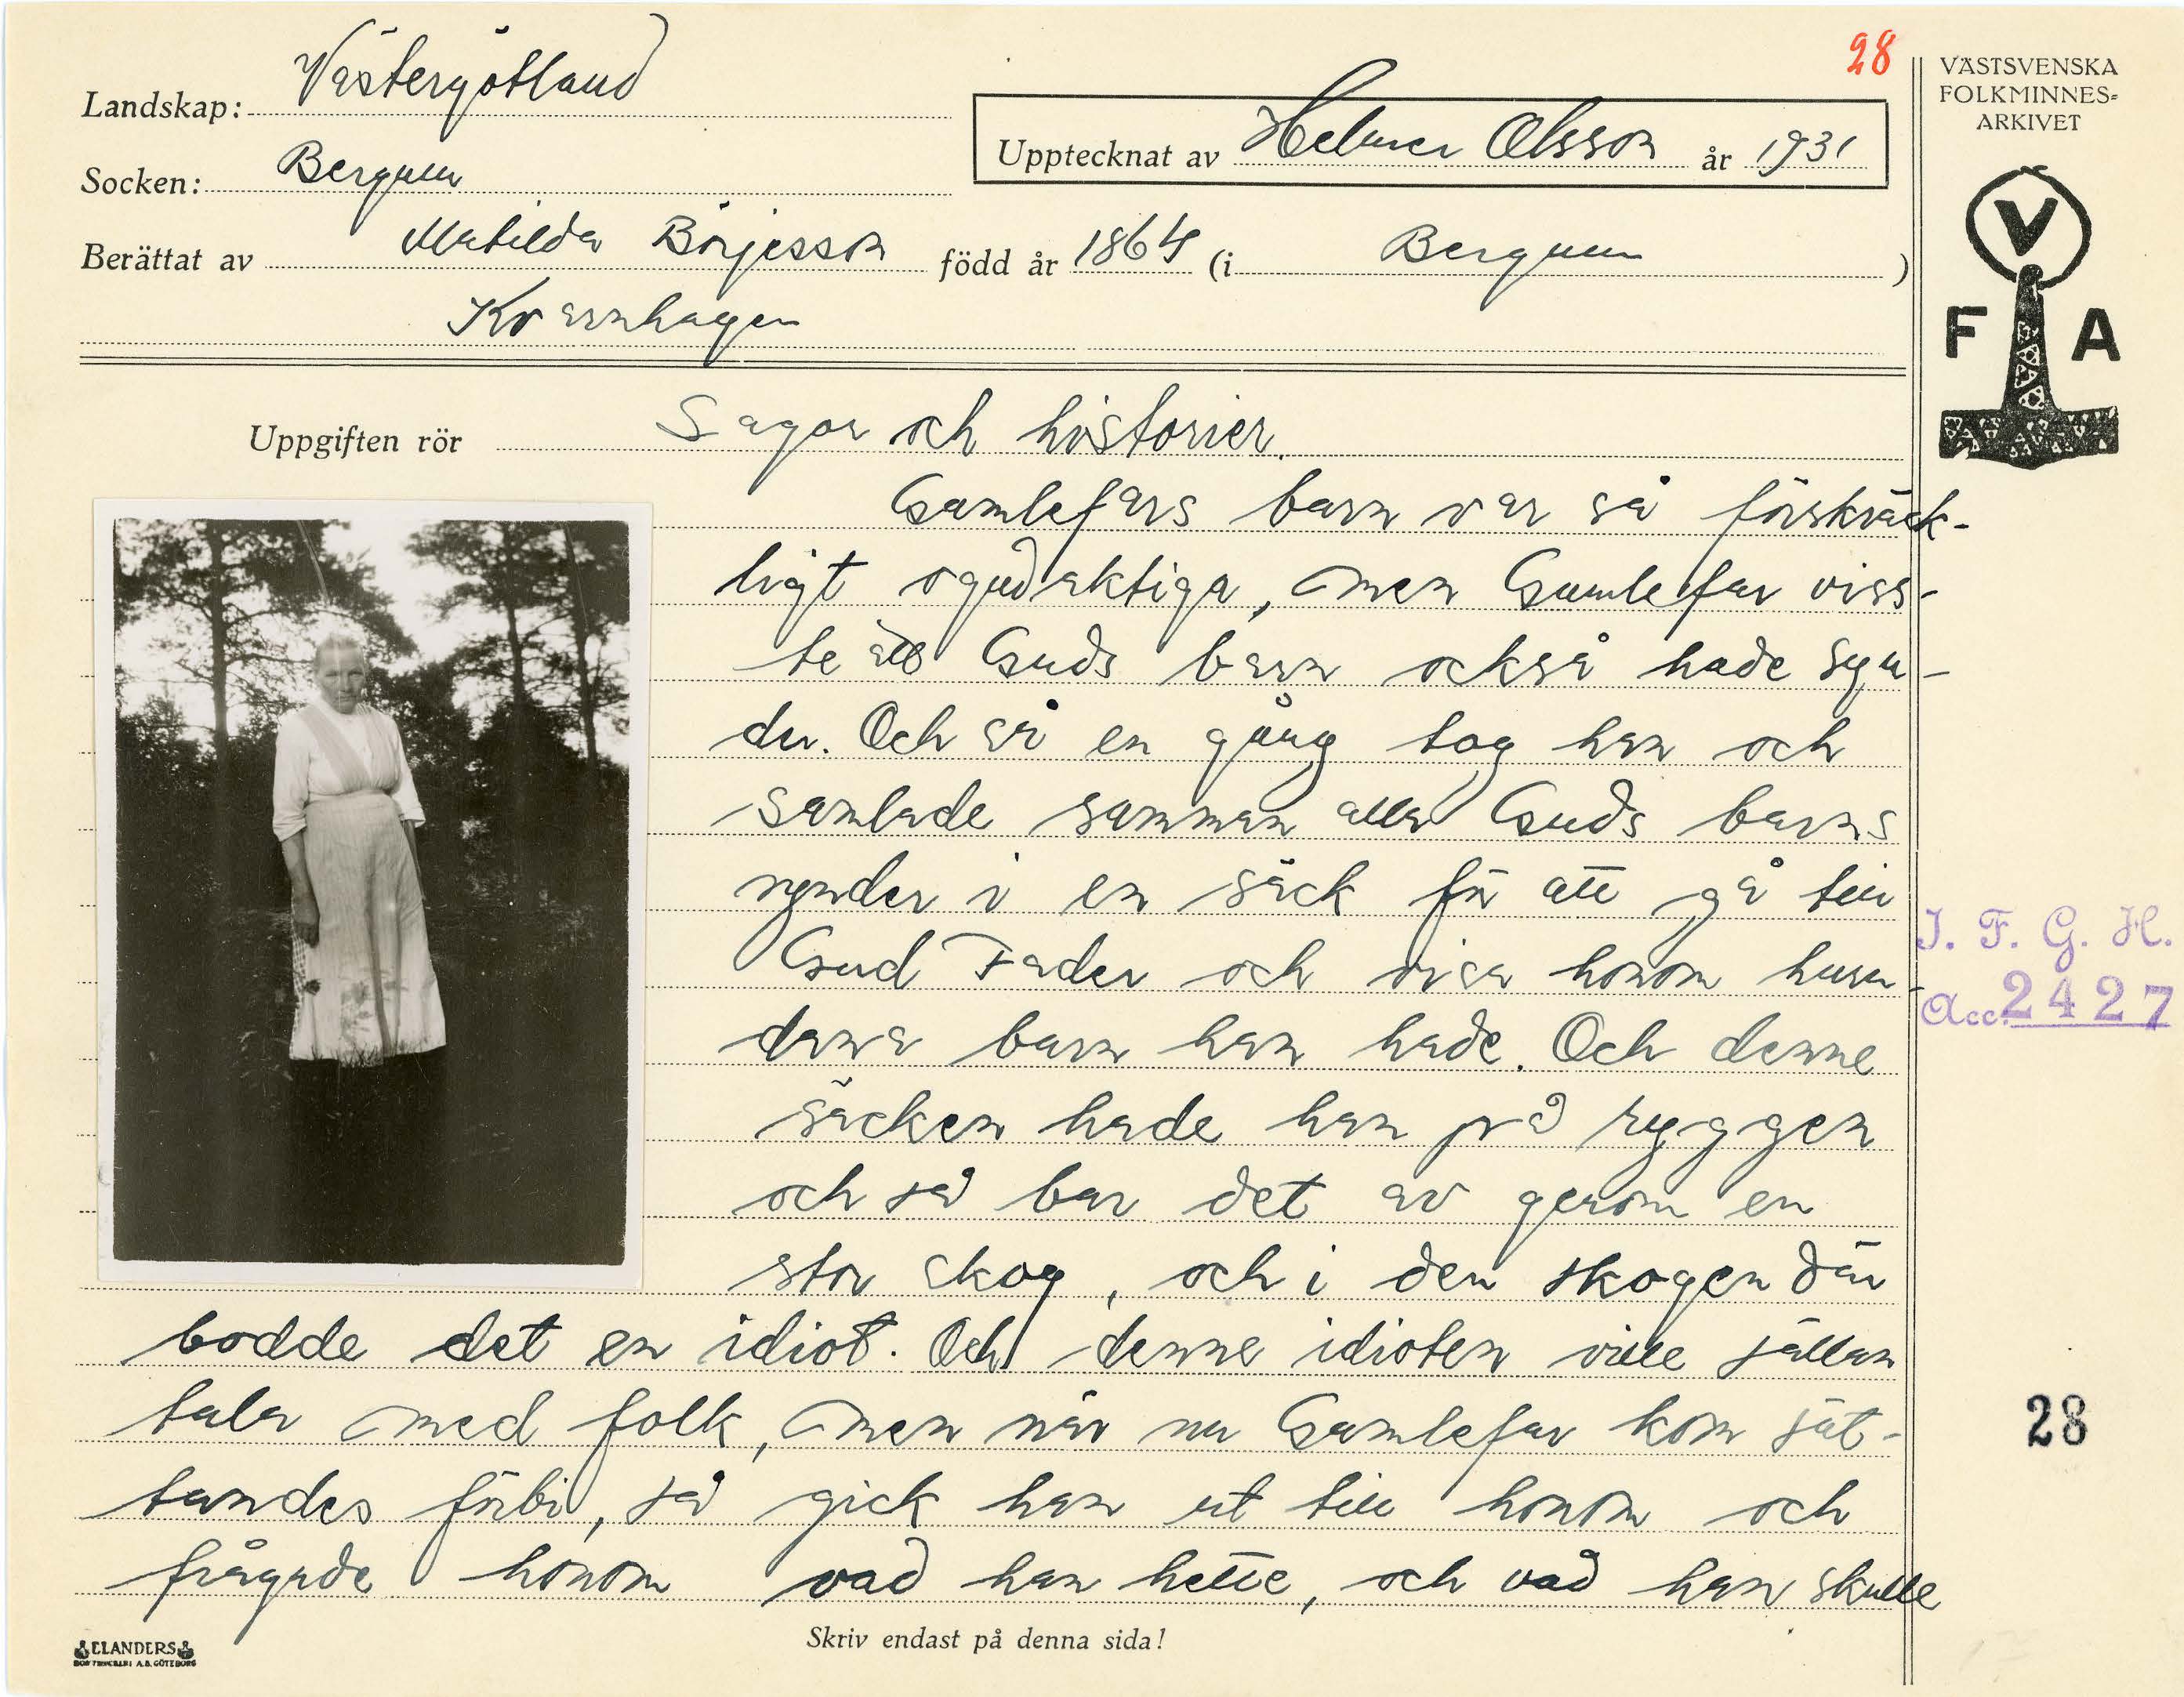 28
VÄSTSVENSKA
FOLKMINNES=
ARKIVET
Landskap: Västergötland
Upptecknat av Helmer Olsson år 1931
Socken: Bergum
Berättat av Matilda Börjesson född år 1864 (i Bergum )
Kvarnhagen
V
F A
Uppgiften rör Sagor och historier.
Gamlefars barn var så förskräck-
ligt ogudaktiga, men Gamlefar viss-
te att Guds barn också hade syn-
der. Och så en gång tog han och
samlade samman alla Guds barns
synder i en säck för att gå till
Gud Fader och visa honom huru-
dana barn han hade. Och denne
säcken hade han på ryggen
och så bar det av genom en
stor skog, och i den skogen där
bodde det en idiot. Och denne idioten ville sällan
tala med folk, men när nu Gamlefar kom sät-
tandes förbi, så gick han ut till honom och
frågade honom vad han hette, och vad han skulle
J. F. G. H.
Acc. 2427
28
Skriv endast på denna sida!
ELANDERS
BOKTRYCKERI A.B. GÖTEBORG